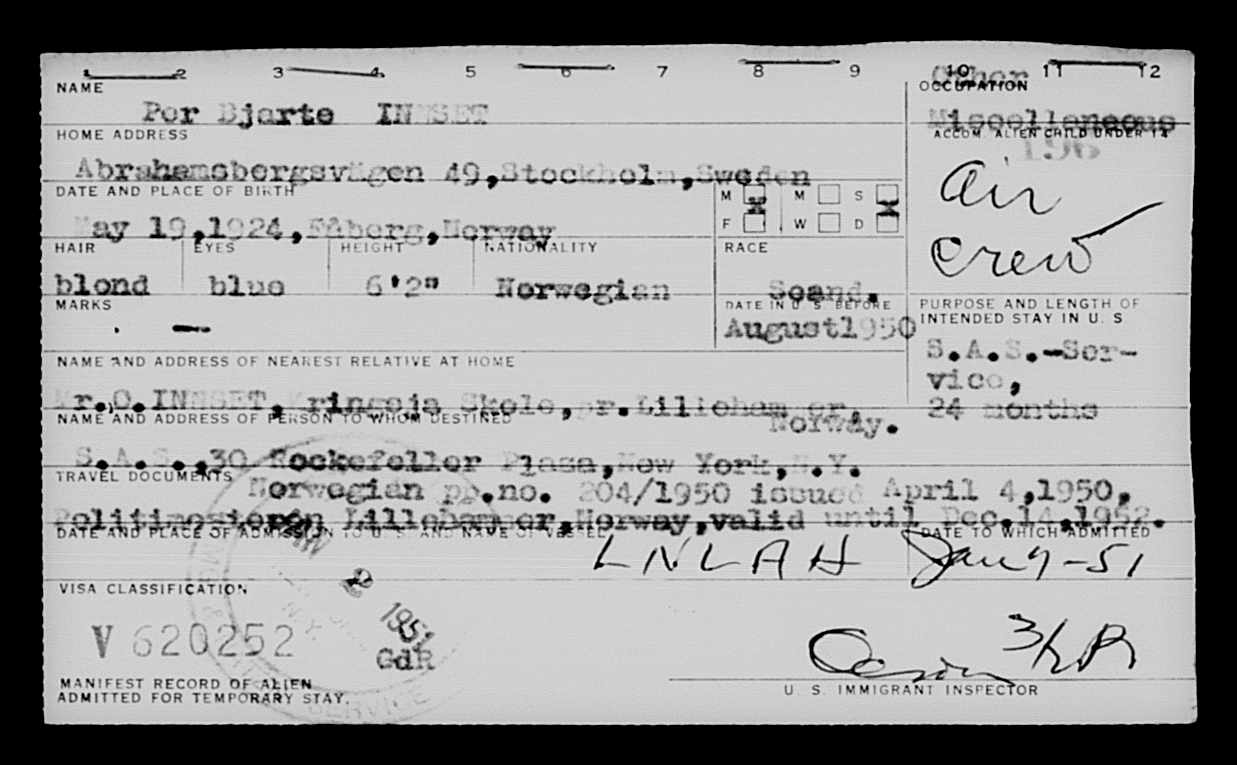 1 2 3 4 5 6 7 8 9 10 11 12
NAME
Per Bjarte INNSET
OCCUPATION
Other
Miscellaneous
HOME ADDRESS
Abrahamsbergsvägen 49,Stockholm,Sweden
ACCOM. ALIEN CHILD UNDER 14
196
air
crew
DATE AND PLACE OF BIRTH
May 19,1924,Fåberg,Norway
M X M S X
F W D
HAIR EYES HEIGHT NATIONALITY RACE
blond blue 6'2" Norwegian Scand.
MARKS
-
DATE IN U. S. BEFORE
August1950
PURPOSE AND LENGTH OF
INTENDED STAY IN U. S
S.A.S.-Ser-
vice,
24 months
NAME AND ADDRESS OF NEAREST RELATIVE AT HOME
Mr.O.INNSET,Kringsja Skole,pr.Lillehammer,
Norway.
NAME AND ADDRESS OF PERSON TO WHOM DESTINED
S.A.S.,30 Rockefeller Plasa,New York,N.Y.
TRAVEL DOCUMENTS
Norwegian pp.no. 204/1950 issued April 4,1950,
Lillehammer,Norway,valid until Dec.14,1952.
DATE AND PLACE OF ADMISSION TO U. S. AND NAME OF VESSEL
LNLAH
DATE TO WHICH ADMITTED
Jan 9-51
VISA CLASSIFICATION
V 620252
2 1951
GdR
SERVICE
MANIFEST RECORD OF ALIEN
ADMITTED FOR TEMPORARY STAY.
U. S. IMMIGRANT INSPECTOR